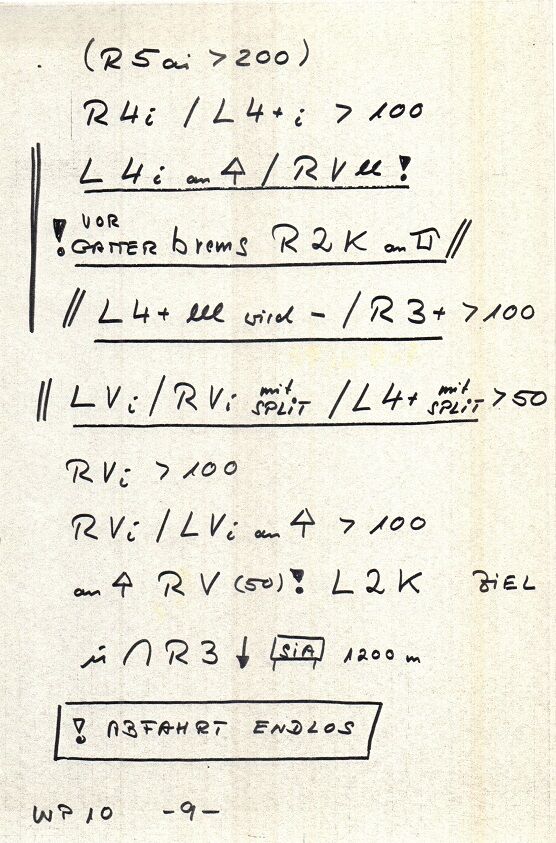 (R5ai > 200)
R4i / L4+i > 100
L4i an ⇧ / RV lll !
VOR
! GATTER brems R2K an //
// L4+ lll wird - / R3+ > 100
// LVi / RVi mit SPLIT / L4+ mit SPLIT > 50
RVi > 100
RVi / LVi an ⇧ > 100
an ⇧ RV (50) ! L2K ZIEL
in ∩ R3 ↓ SiA 1200 m
! ABFAHRT ENDLOS
WP 10 -9-